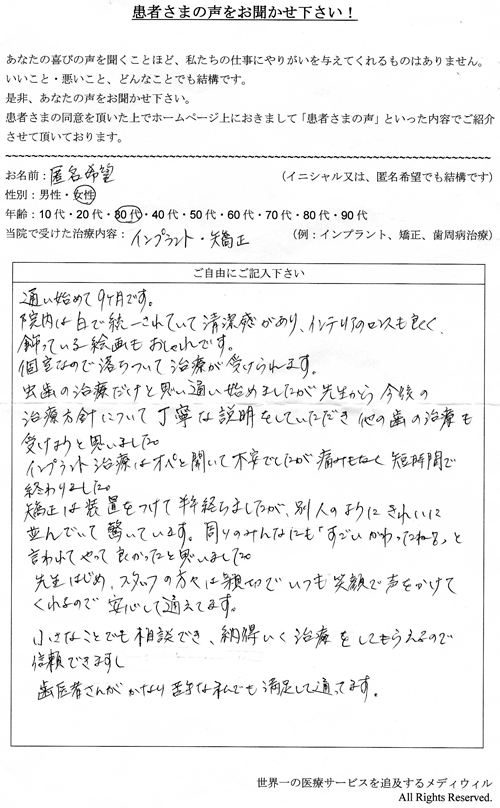 患者さまの声をお聞かせ下さい！
あなたの喜びの声を聞くことほど、私たちの仕事にやりがいを与えてくれるものはありません。
いいこと・悪いこと、どんなことでも結構です。
是非、あなたの声をお聞かせ下さい。
患者さまの同意を頂いた上でホームページ上におきまして「患者さまの声」といった内容でご紹介
させて頂いております。
お名前：匿名希望 （イニシャル又は、匿名希望でも結構です）
性別：男性・女性
年齢：10代・20代・30代・40代・50代・60代・70代・80代・90代
当院で受けた治療内容：インプラント・矯正 （例：インプラント、矯正、歯周病治療）
ご自由にご記入下さい
通い始めて9ヶ月です。
院内は白で統一されていて清潔感があり、インテリアのセンスも良く、
飾っている絵画もおしゃれです。
個室なので落ちついて治療が受けられます。
虫歯の治療だけと思い通い始めましたが先生から今後の
治療方針について丁寧な説明をしていただき他の歯の治療も
受けようと思いました。
インプラント治療はオペと聞いて不安でしたが痛みもなく短時間で
終わりました。
矯正は装置をつけて半年経ちましたが、別人のようにきれいに
並んでいて驚いています。周りのみんなにも「すごいかわったね。」と
言われてやって良かったと思いました。
先生はじめ、スタッフの方々は親切でいつも笑顔で声をかけて
くれるので安心して通えてます。
小さなことでも相談でき、納得いく治療をしてもらえるので
信頼できますし
歯医者さんがかなり苦手な私でも満足して通ってます。
世界一の医療サービスを追及するメディウィル
All Rights Reserved.